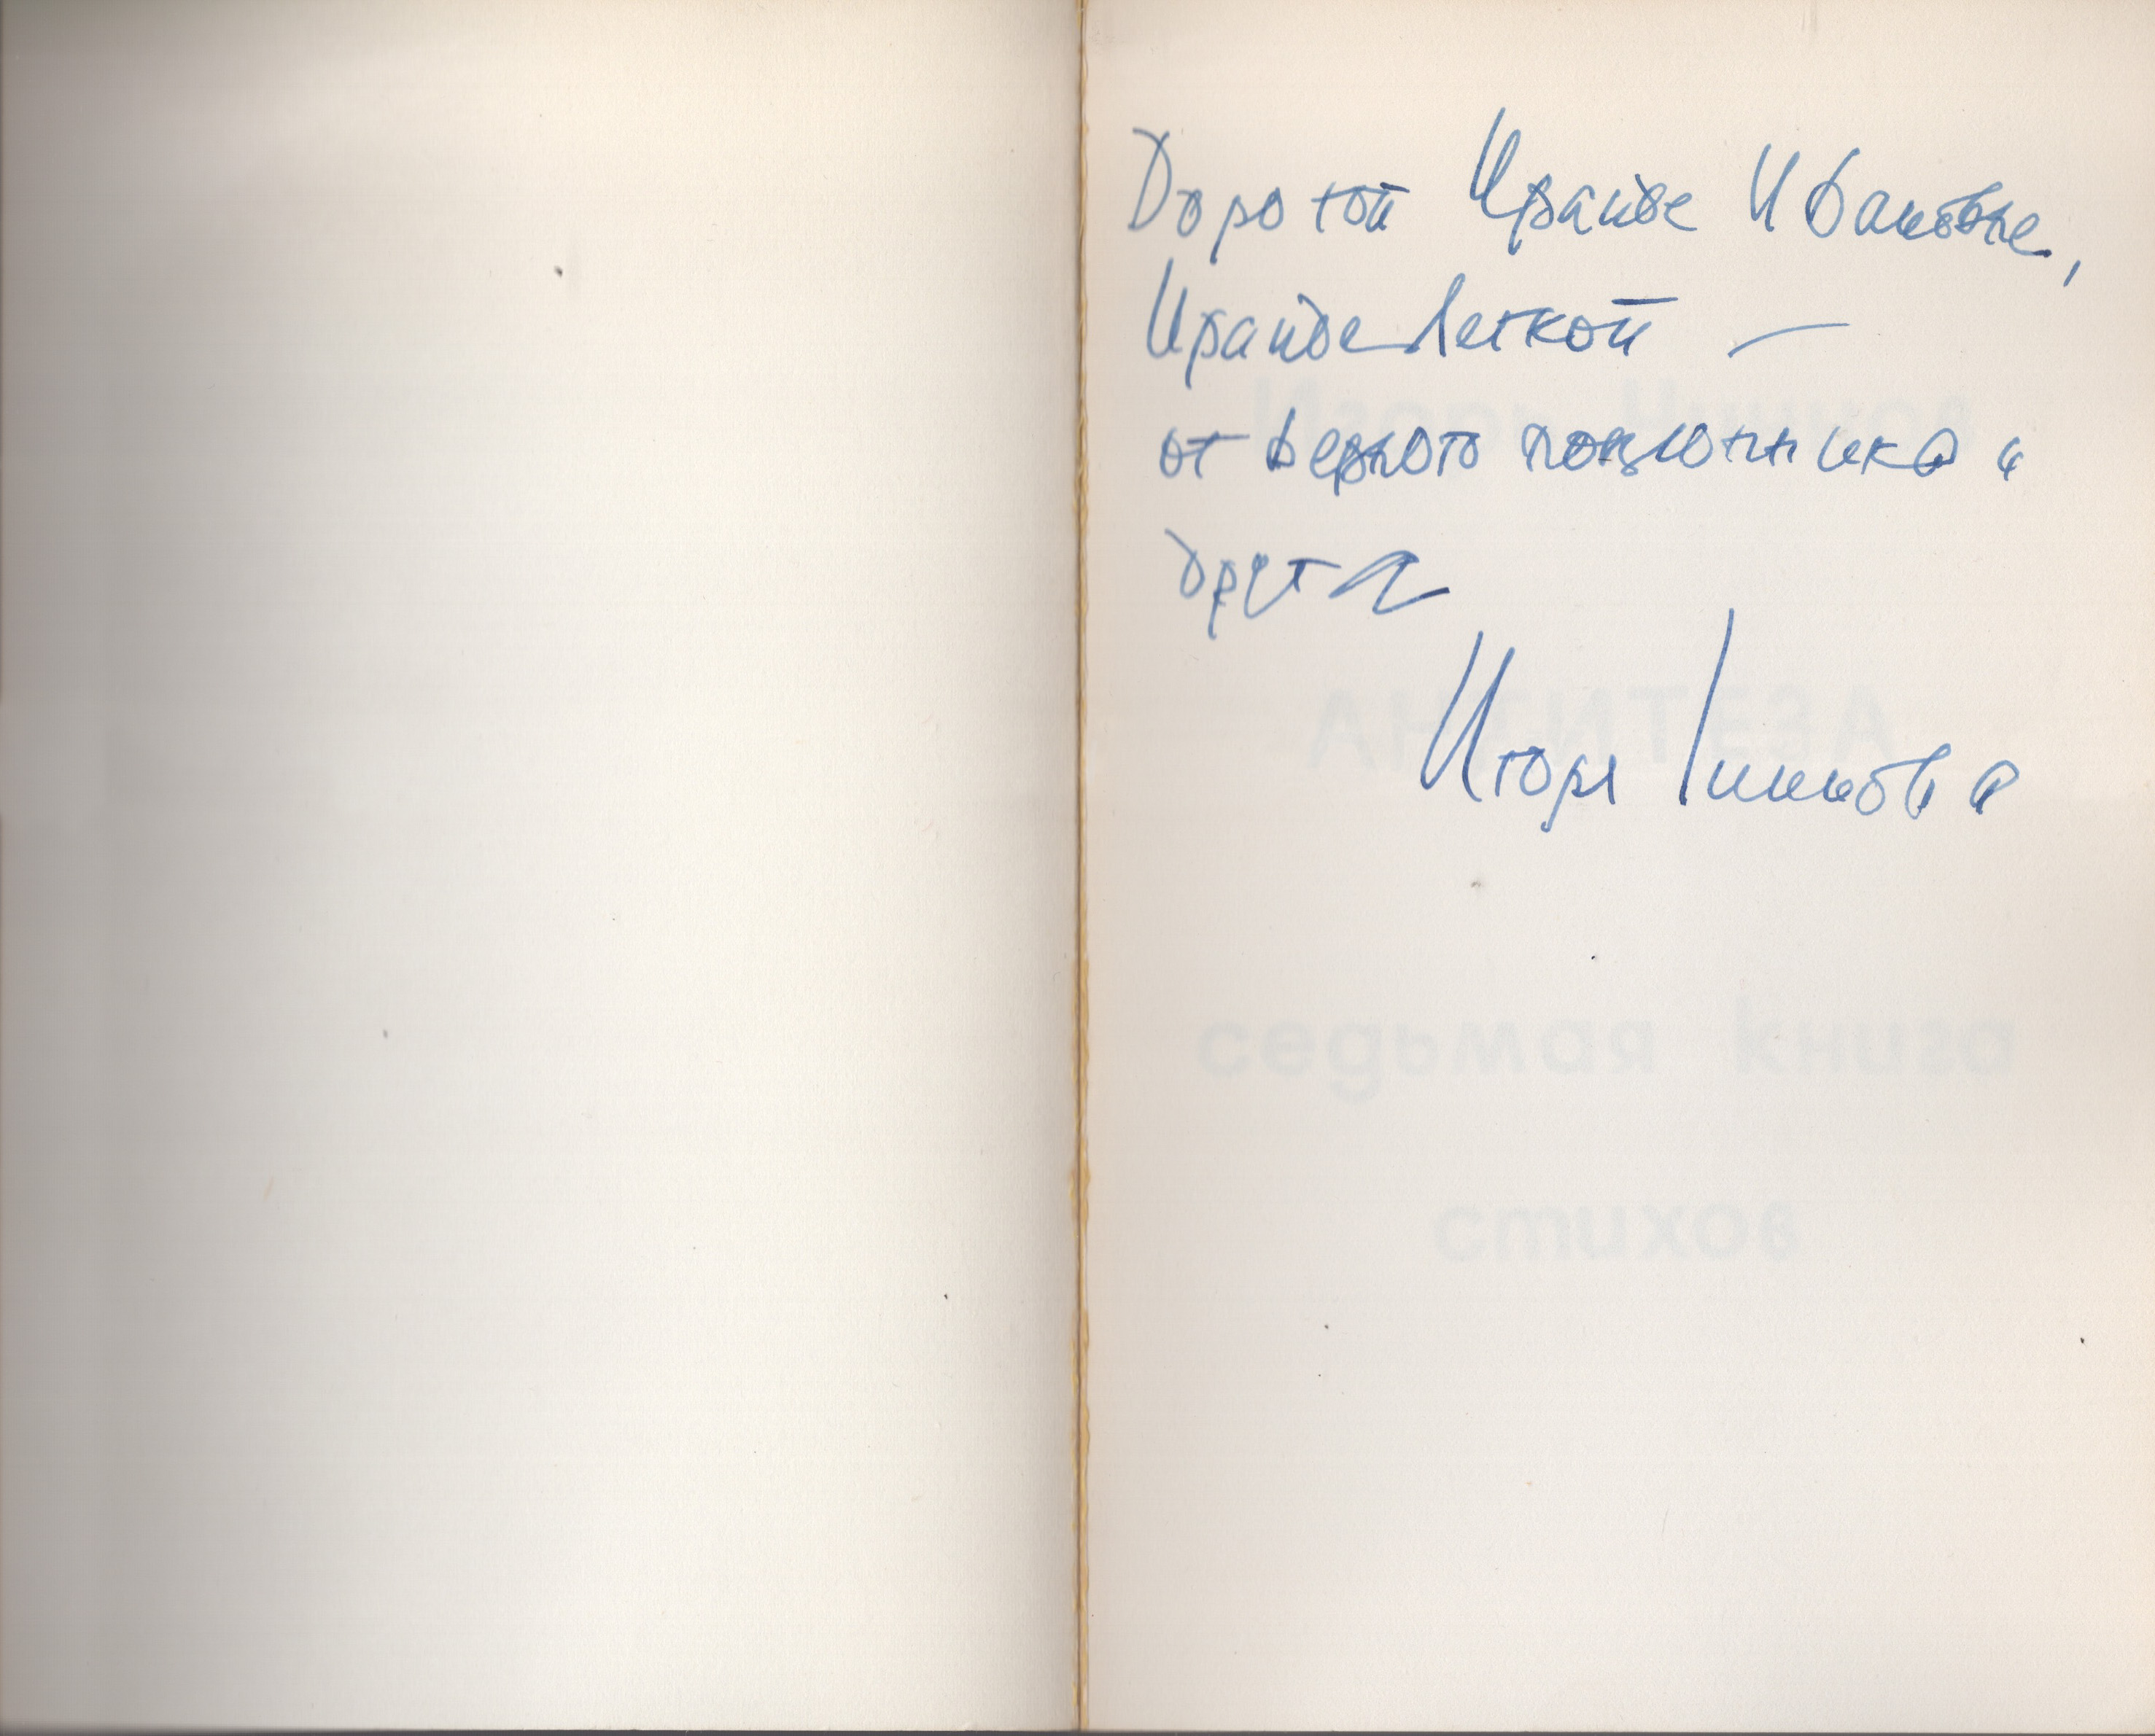 Дорогой Ираиде Ивановне,
Ираиде Легкой —
от верного поклонника и
друга
Игоря Чиннова
Игорь Чиннов
АНТИТЕЗА
седьмая книга
стихов